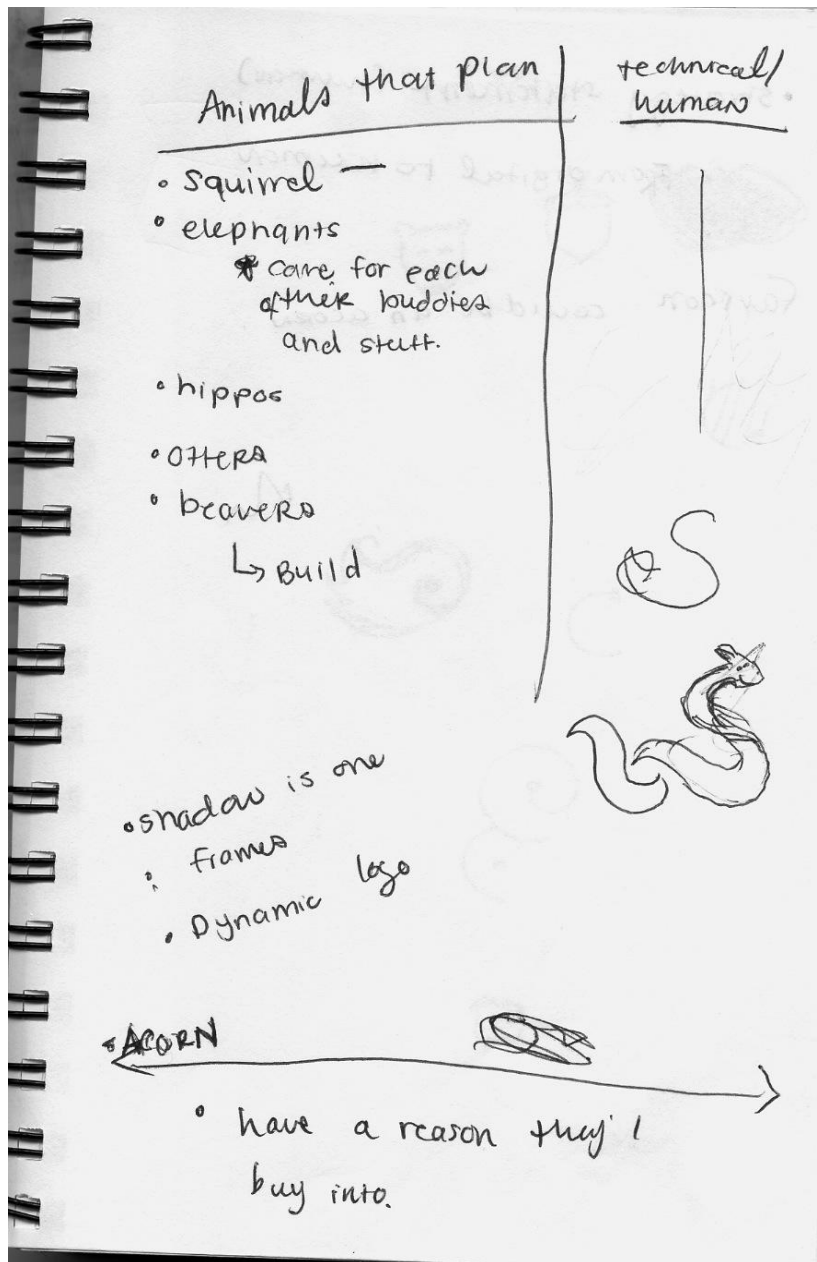 Animals that plan
technical/
human
• squirrel —
• elephants
* care for each
other buddies
and stuff.
• hippos
• otters
• beavers
↳ Build
• shadow is one
• frames
• Dynamic logo
• ACORN
• have a reason they'l
buy into.